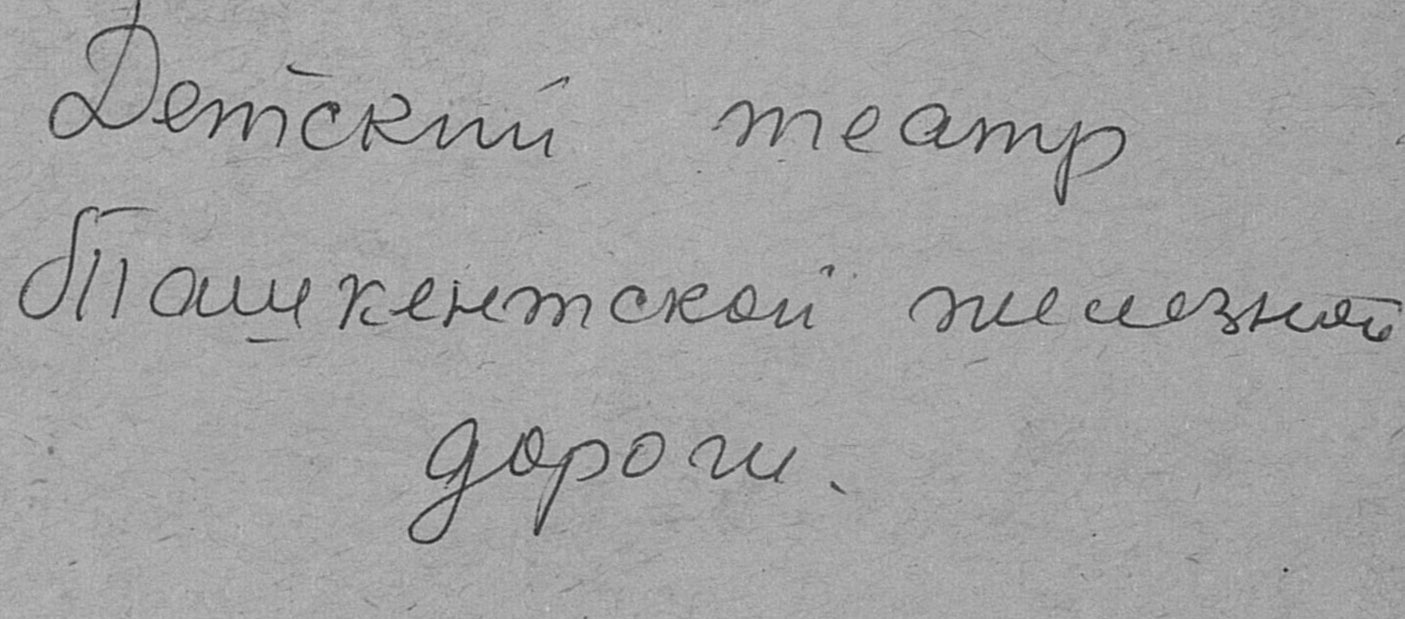 Детский театр
Ташкентской железной
дороги.